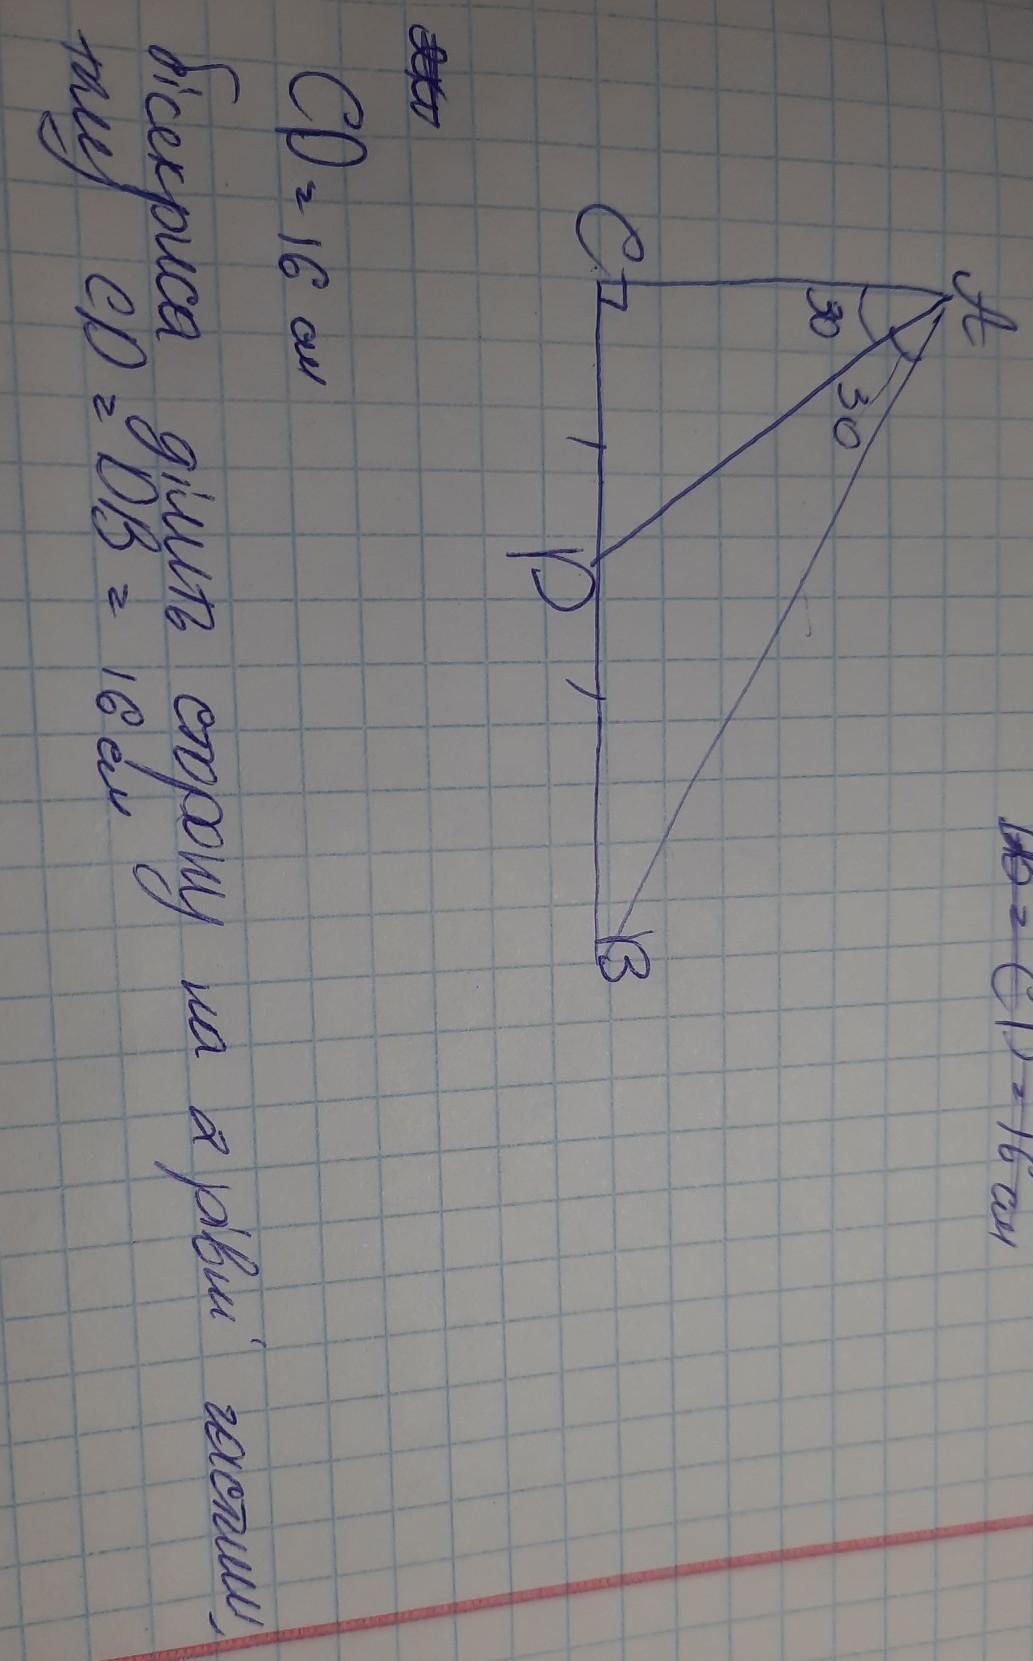 = CD = 16 см
A
30
30
C
D
B
CD = 16 см
бісектриса ділить сторону на 2 рівні частини,
тому CD = DB = 16 см